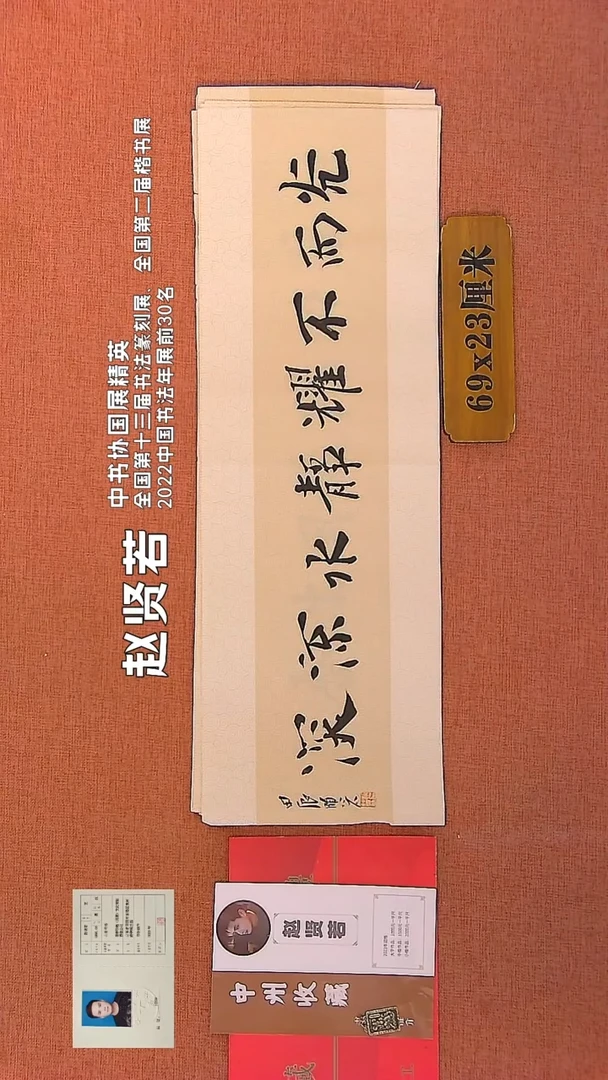 赵贤若
中书协国展精英
全国第十三届书法篆刻展、全国第二届楷书展
2022中国书法年展前30名
光而不耀静水流深
甲辰贤若
69x23厘米
赵贤若
中州收藏
藏